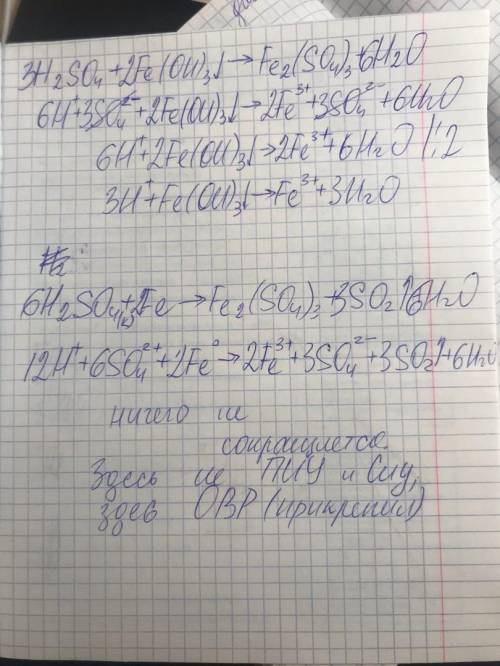 3H₂SO₄ + 2Fe(OH)₃↓ → Fe₂(SO₄)₃ + 6H₂O
6H⁺ + 3SO₄²⁻ + 2Fe(OH)₃↓ → 2Fe³⁺ + 3SO₄²⁻ + 6H₂O
6H⁺ + 2Fe(OH)₃↓ → 2Fe³⁺ + 6H₂O |:2
3H⁺ + Fe(OH)₃↓ → Fe³⁺ + 3H₂O
6H₂SO₄(к) + 2Fe → Fe₂(SO₄)₃ + 3SO₂↑ + 6H₂O
12H⁺ + 6SO₄²⁺ + 2Fe⁰ → 2Fe³⁺ + 3SO₄²⁻ + 3SO₂↑ + 6H₂O
ничего не
сокращается.
Здесь не ПИУ и СИУ,
здес ОВР (прикрепил)